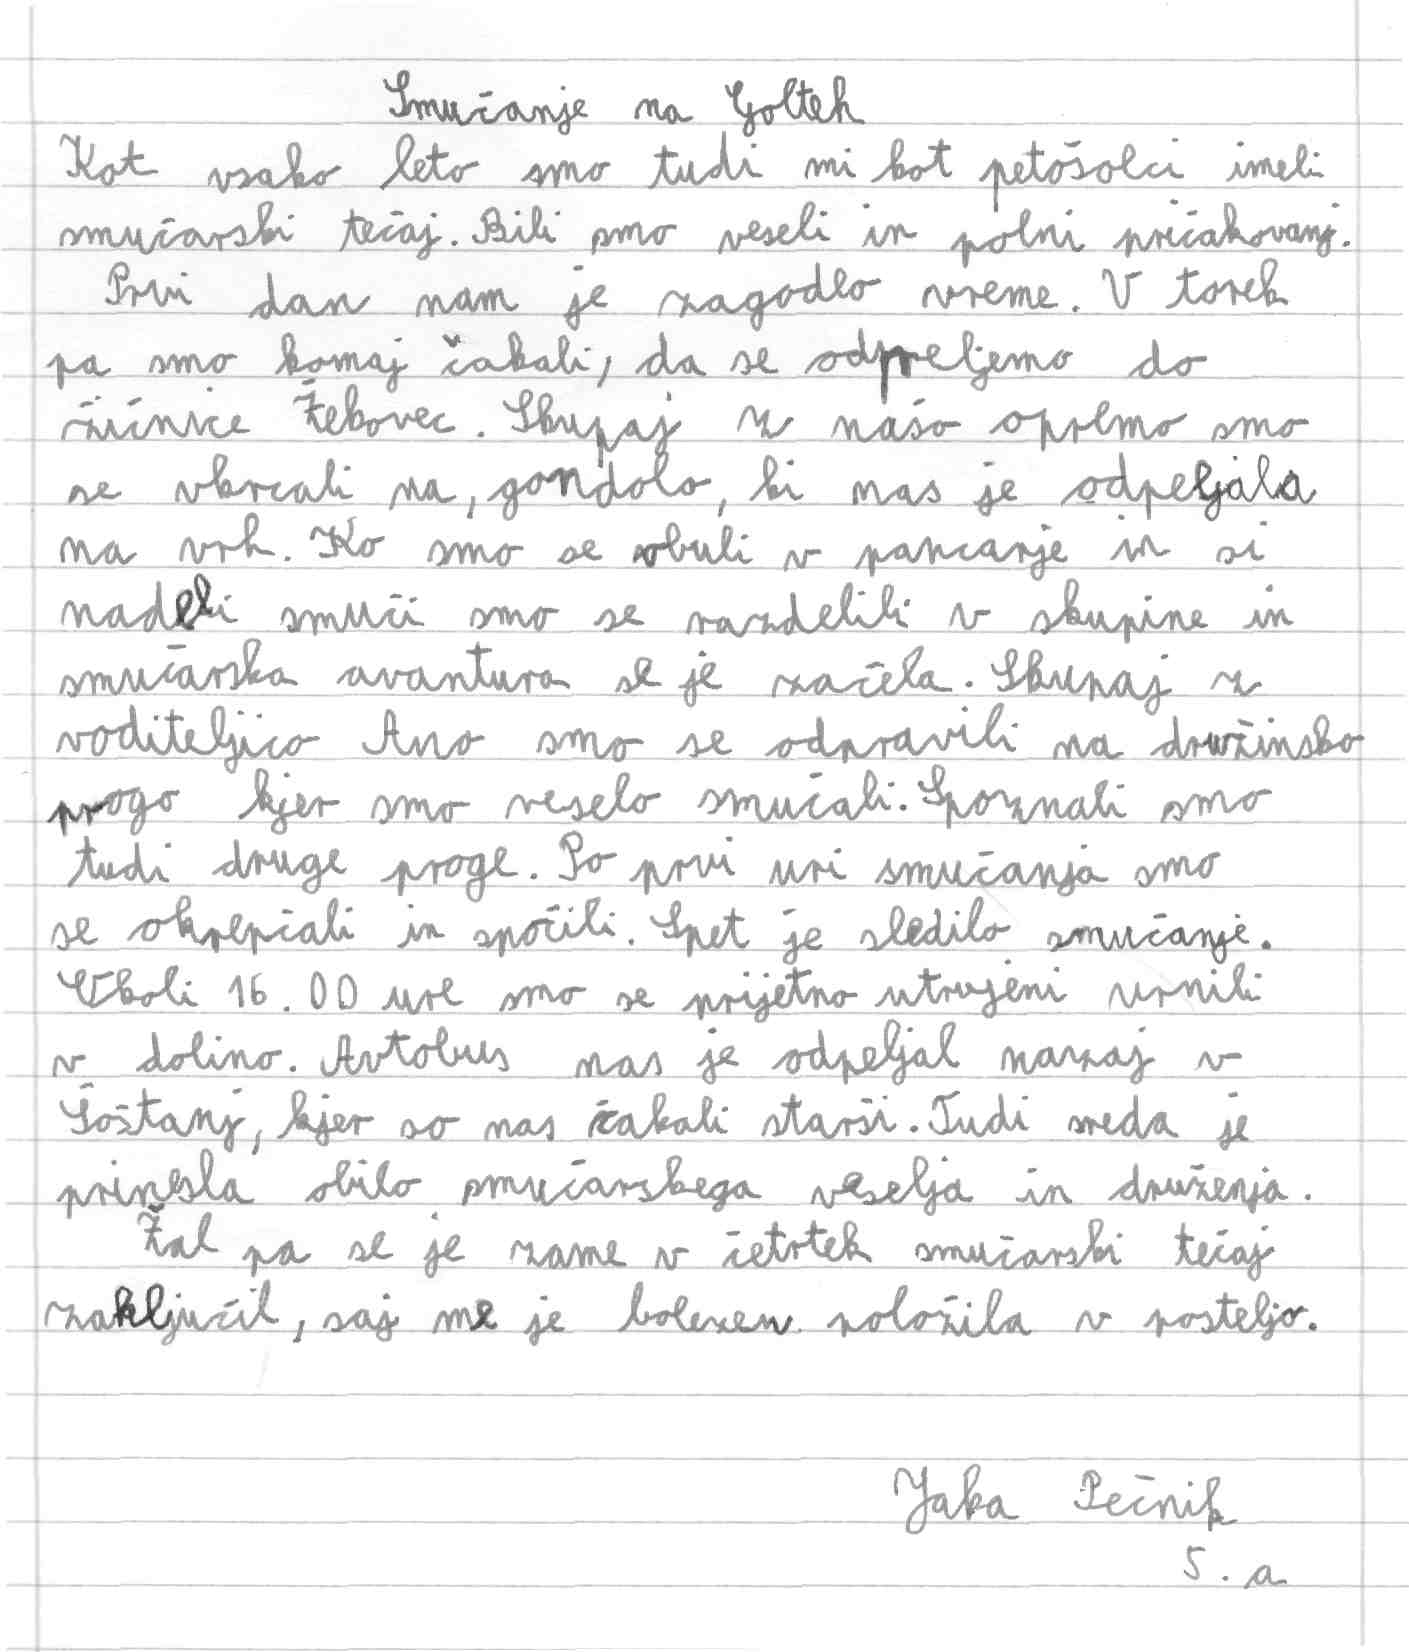 Smučanje na Golteh
Kot vsako leto smo tudi mi kot petošolci imeli
smučarski tečaj. Bili smo veseli in polni pričakovanj.
Prvi dan nam je zagodlo vreme. V torek
pa smo komaj čakali, da se odpreljemo do
žičnice Žekovec. Skupaj z našo opremo smo
se vkrcali na, gondolo, ki nas je odpeljala
na vrh. Ko smo se obuli v pancarje in si
nadeli smuči smo se razdelili v skupine in
smučarska avantura se je začela. Skupaj z
voditeljico Ano smo se odpravili na družinsko
progo kjer smo veselo smučali. Spoznali smo
tudi druge proge. Po prvi uri smučanja smo
se okrepčali in spočili. Spet je sledilo smučanje.
Okoli 16.00 ure smo se prijetno utrujeni vrnili
v dolino. Avtobus nas je odpeljal nazaj v
Šoštanj, kjer so nas čakali starši. Tudi sreda je
prinesla obilo smučarskega veselja in druženja.
Žal pa se je zame v četrtek smučarski tečaj
zaključil, saj me je bolezen položila v posteljo.
Jaka Pečnik
5. a